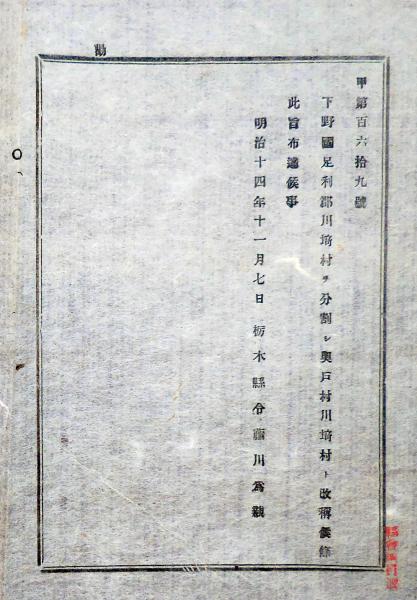 甲第百六拾九號
下野國足利郡川﨑村ヲ分割シ奥戸村川﨑村ト改稱候條
此旨布達候事
明治十四年十一月七日 栃木縣令藤川爲親
勸